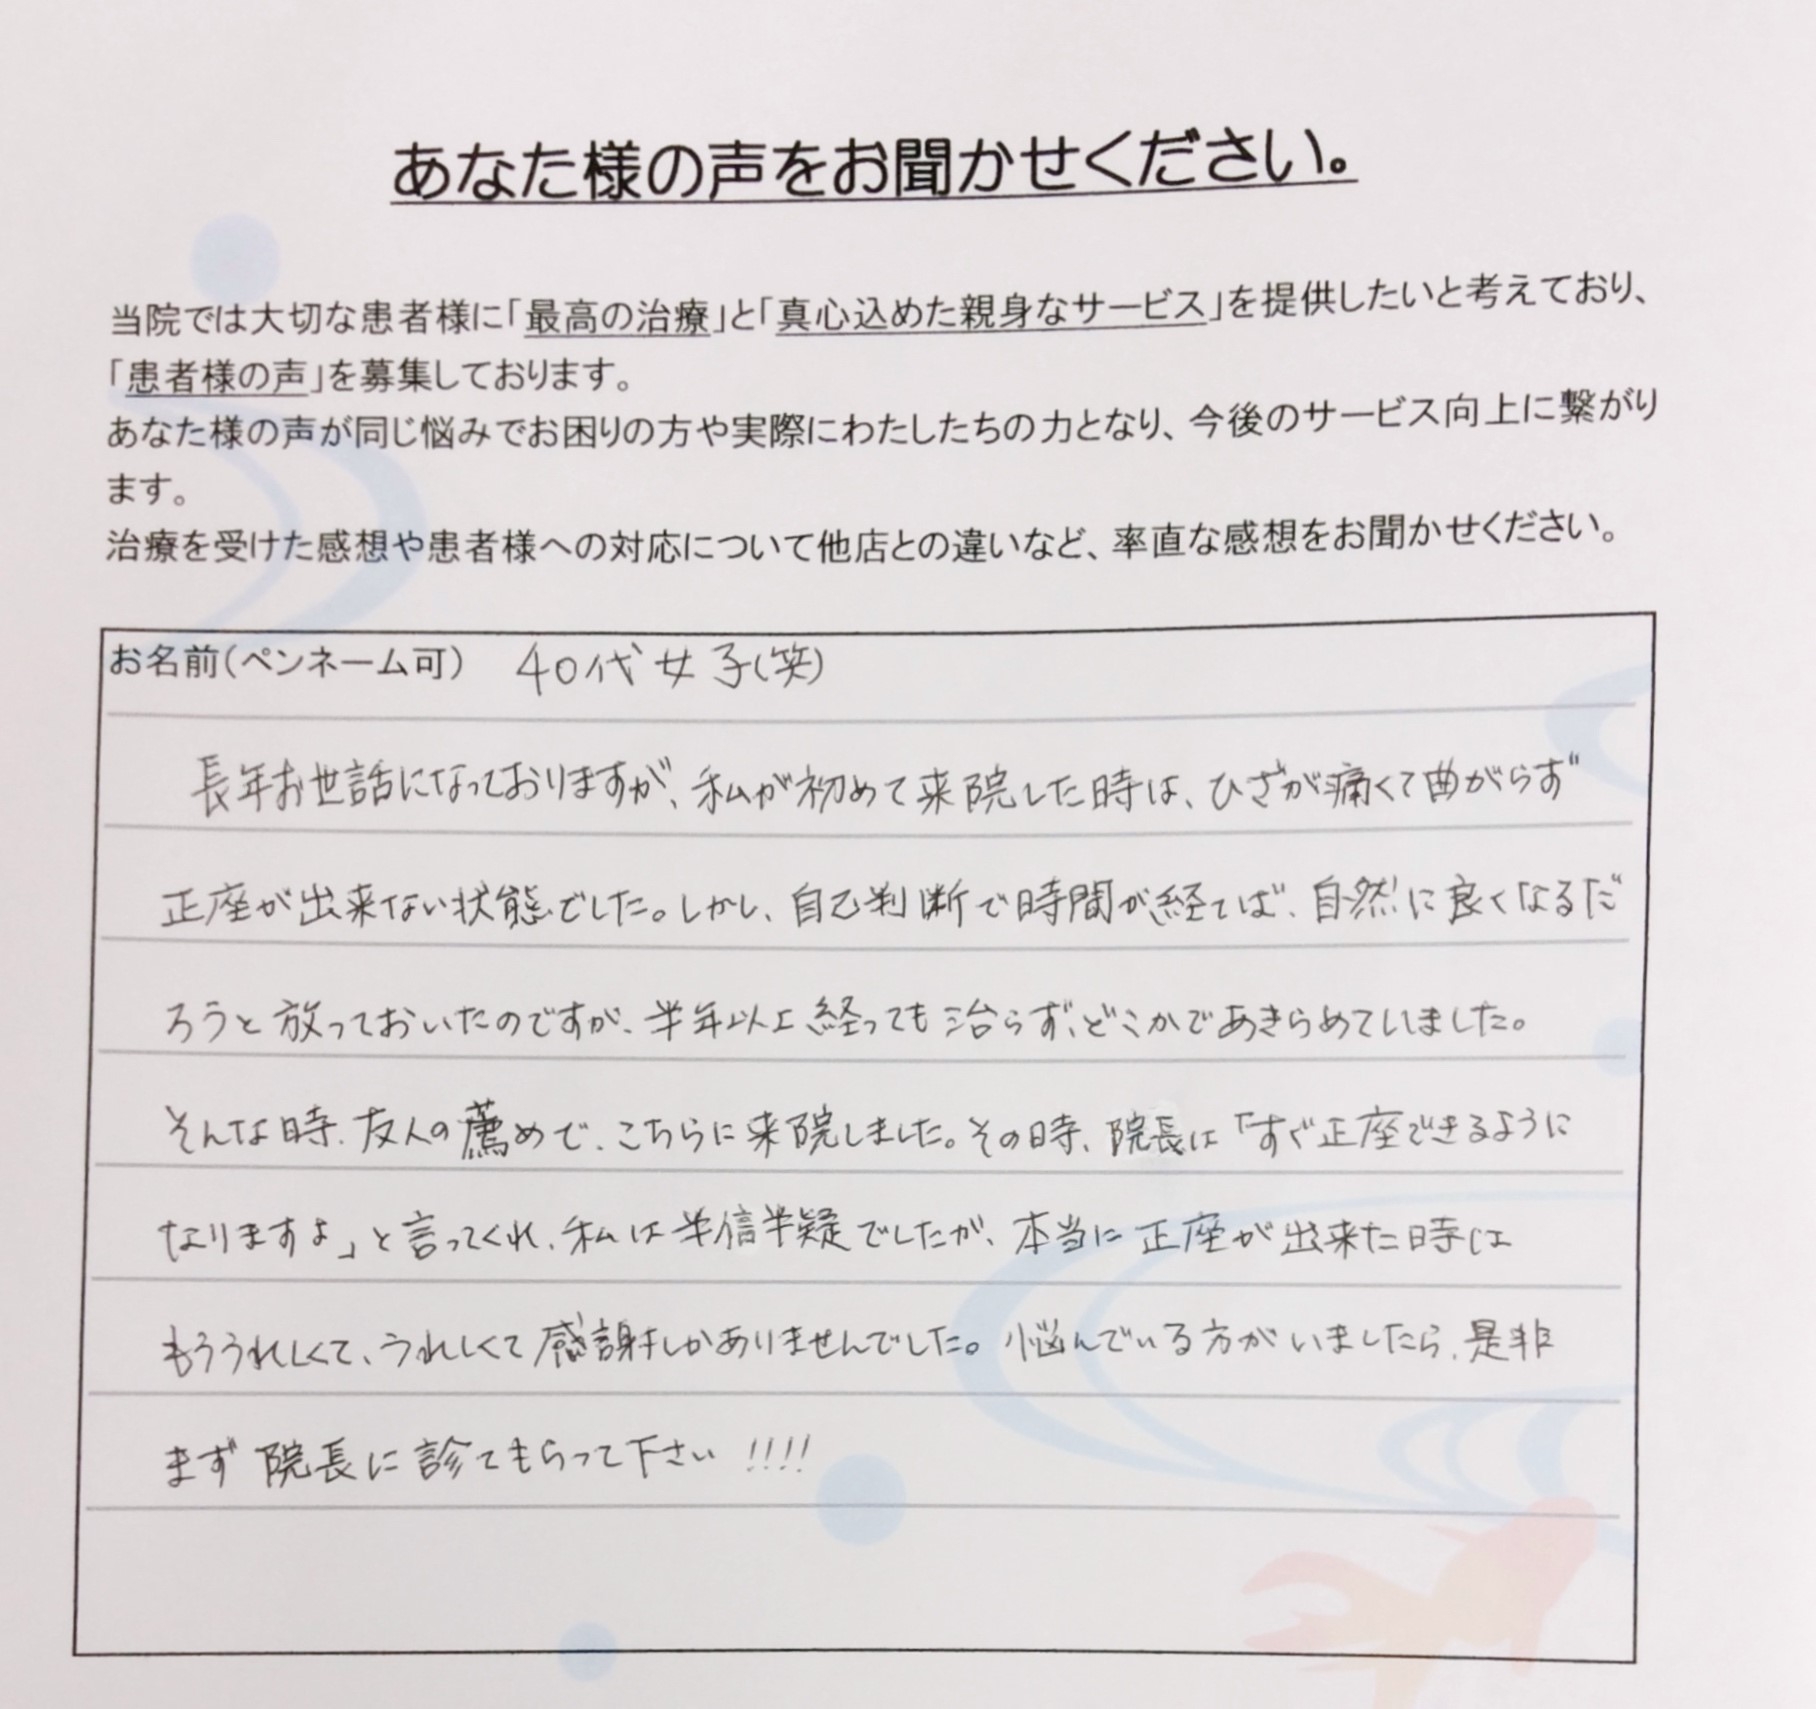 あなた様の声をお聞かせください。
当院では大切な患者様に「最高の治療」と「真心込めた親身なサービス」を提供したいと考えており、
「患者様の声」を募集しております。
あなた様の声が同じ悩みでお困りの方や実際にわたしたちの力となり、今後のサービス向上に繋がり
ます。
治療を受けた感想や患者様への対応について他店との違いなど、率直な感想をお聞かせください。
お名前(ペンネーム可) 40代女子(笑)
長年お世話になっておりますが、私が初めて来院した時は、ひざが痛くて曲がらず
正座が出来ない状態でした。しかし、自己判断で時間が経てば、自然に良くなるだ
ろうと放っておいたのですが、半年以上経っても治らず、どこかであきらめていました。
そんな時、友人の薦めで、こちらに来院しました。その時、院長は「すぐ正座できるように
なりますよ」と言ってくれ、私は半信半疑でしたが、本当に正座が出来た時は
もううれしくて、うれしくて感謝しかありませんでした。悩んでいる方がいましたら、是非
まず院長に診てもらって下さい!!!!